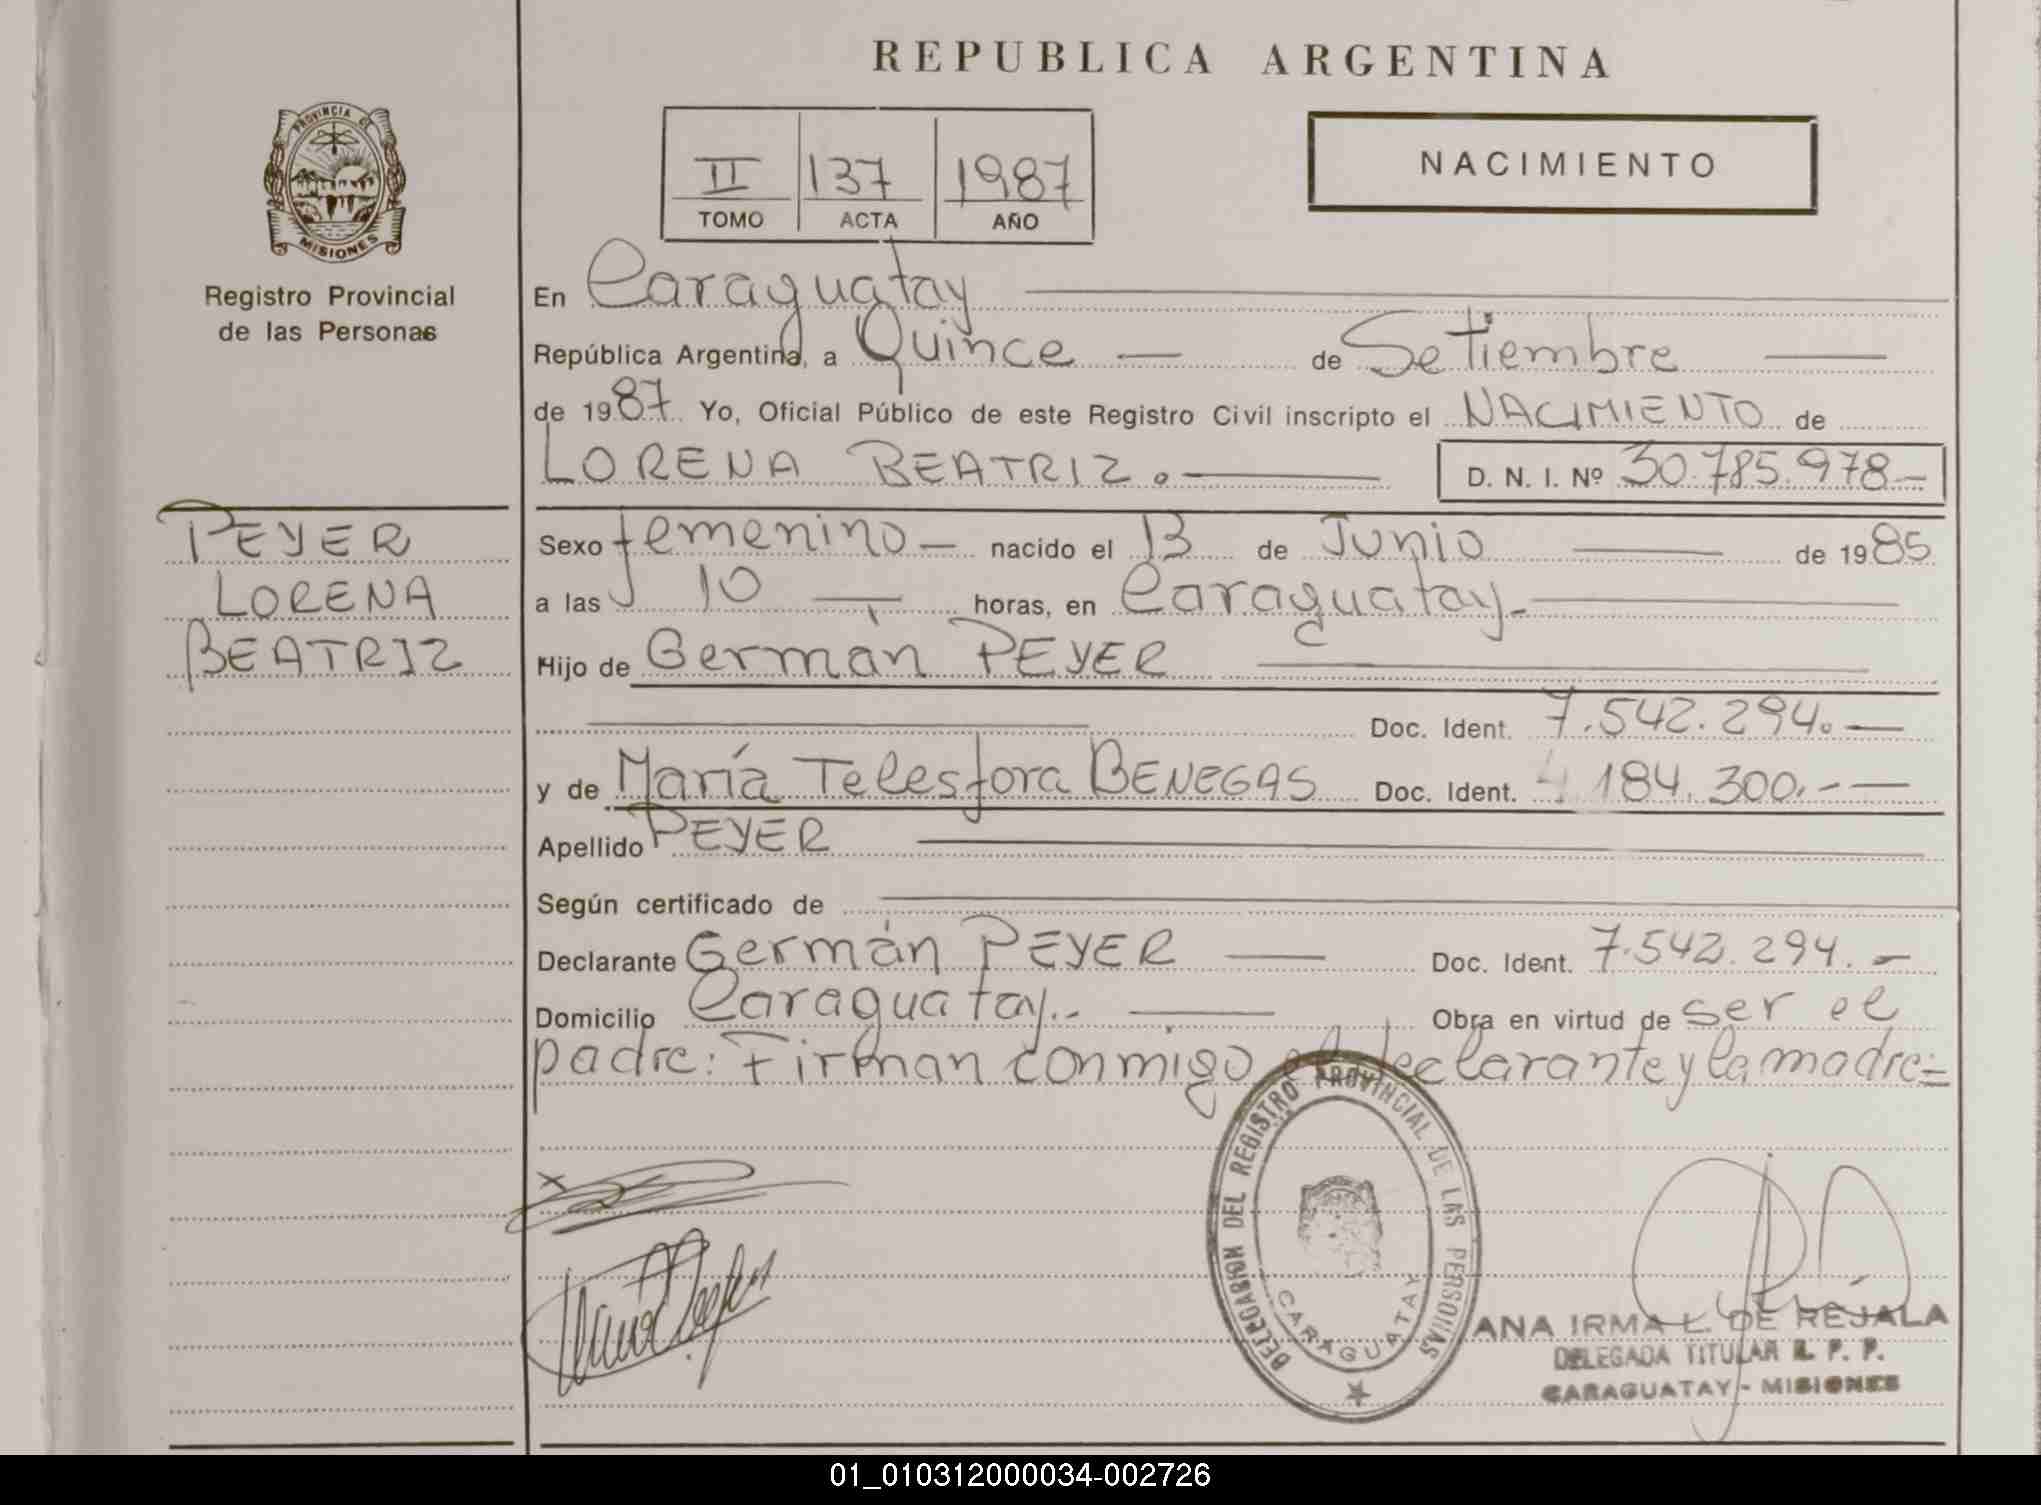 REPUBLICA ARGENTINA
PROVINCIA DE MISIONES
Registro Provincial
de las Personas
II 137 1987
TOMO ACTA AÑO
NACIMIENTO
En Caraguatay
República Argentina, a Quince de Setiembre
de 1987. Yo, Oficial Público de este Registro Civil inscripto el NACIMIENTO de
LORENA BEATRIZ. D. N. I. Nº 30.785.978-
PEYER
LORENA
BEATRIZ
Sexo femenino nacido el 13 de Junio de 1985
a las 10 horas, en Caraguatay.
Hijo de Germán PEYER
Doc. Ident. 7.542.294.
y de María Telesfora BENEGAS Doc. Ident. 4 184.300.
Apellido PEYER
Según certificado de
Declarante Germán PEYER Doc. Ident. 7.542.294.-
Domicilio Caraguatay.- Obra en virtud de ser el
padre: Firman conmigo el declarante y la madre=
DELEGACION DEL REGISTRO PROVINCIAL DE LAS PERSONAS
CARAGUATAY
ANA IRMA L. DE REJALA
DELEGADA TITULAR R. P. P.
CARAGUATAY - MISIONES
01_010312000034-002726